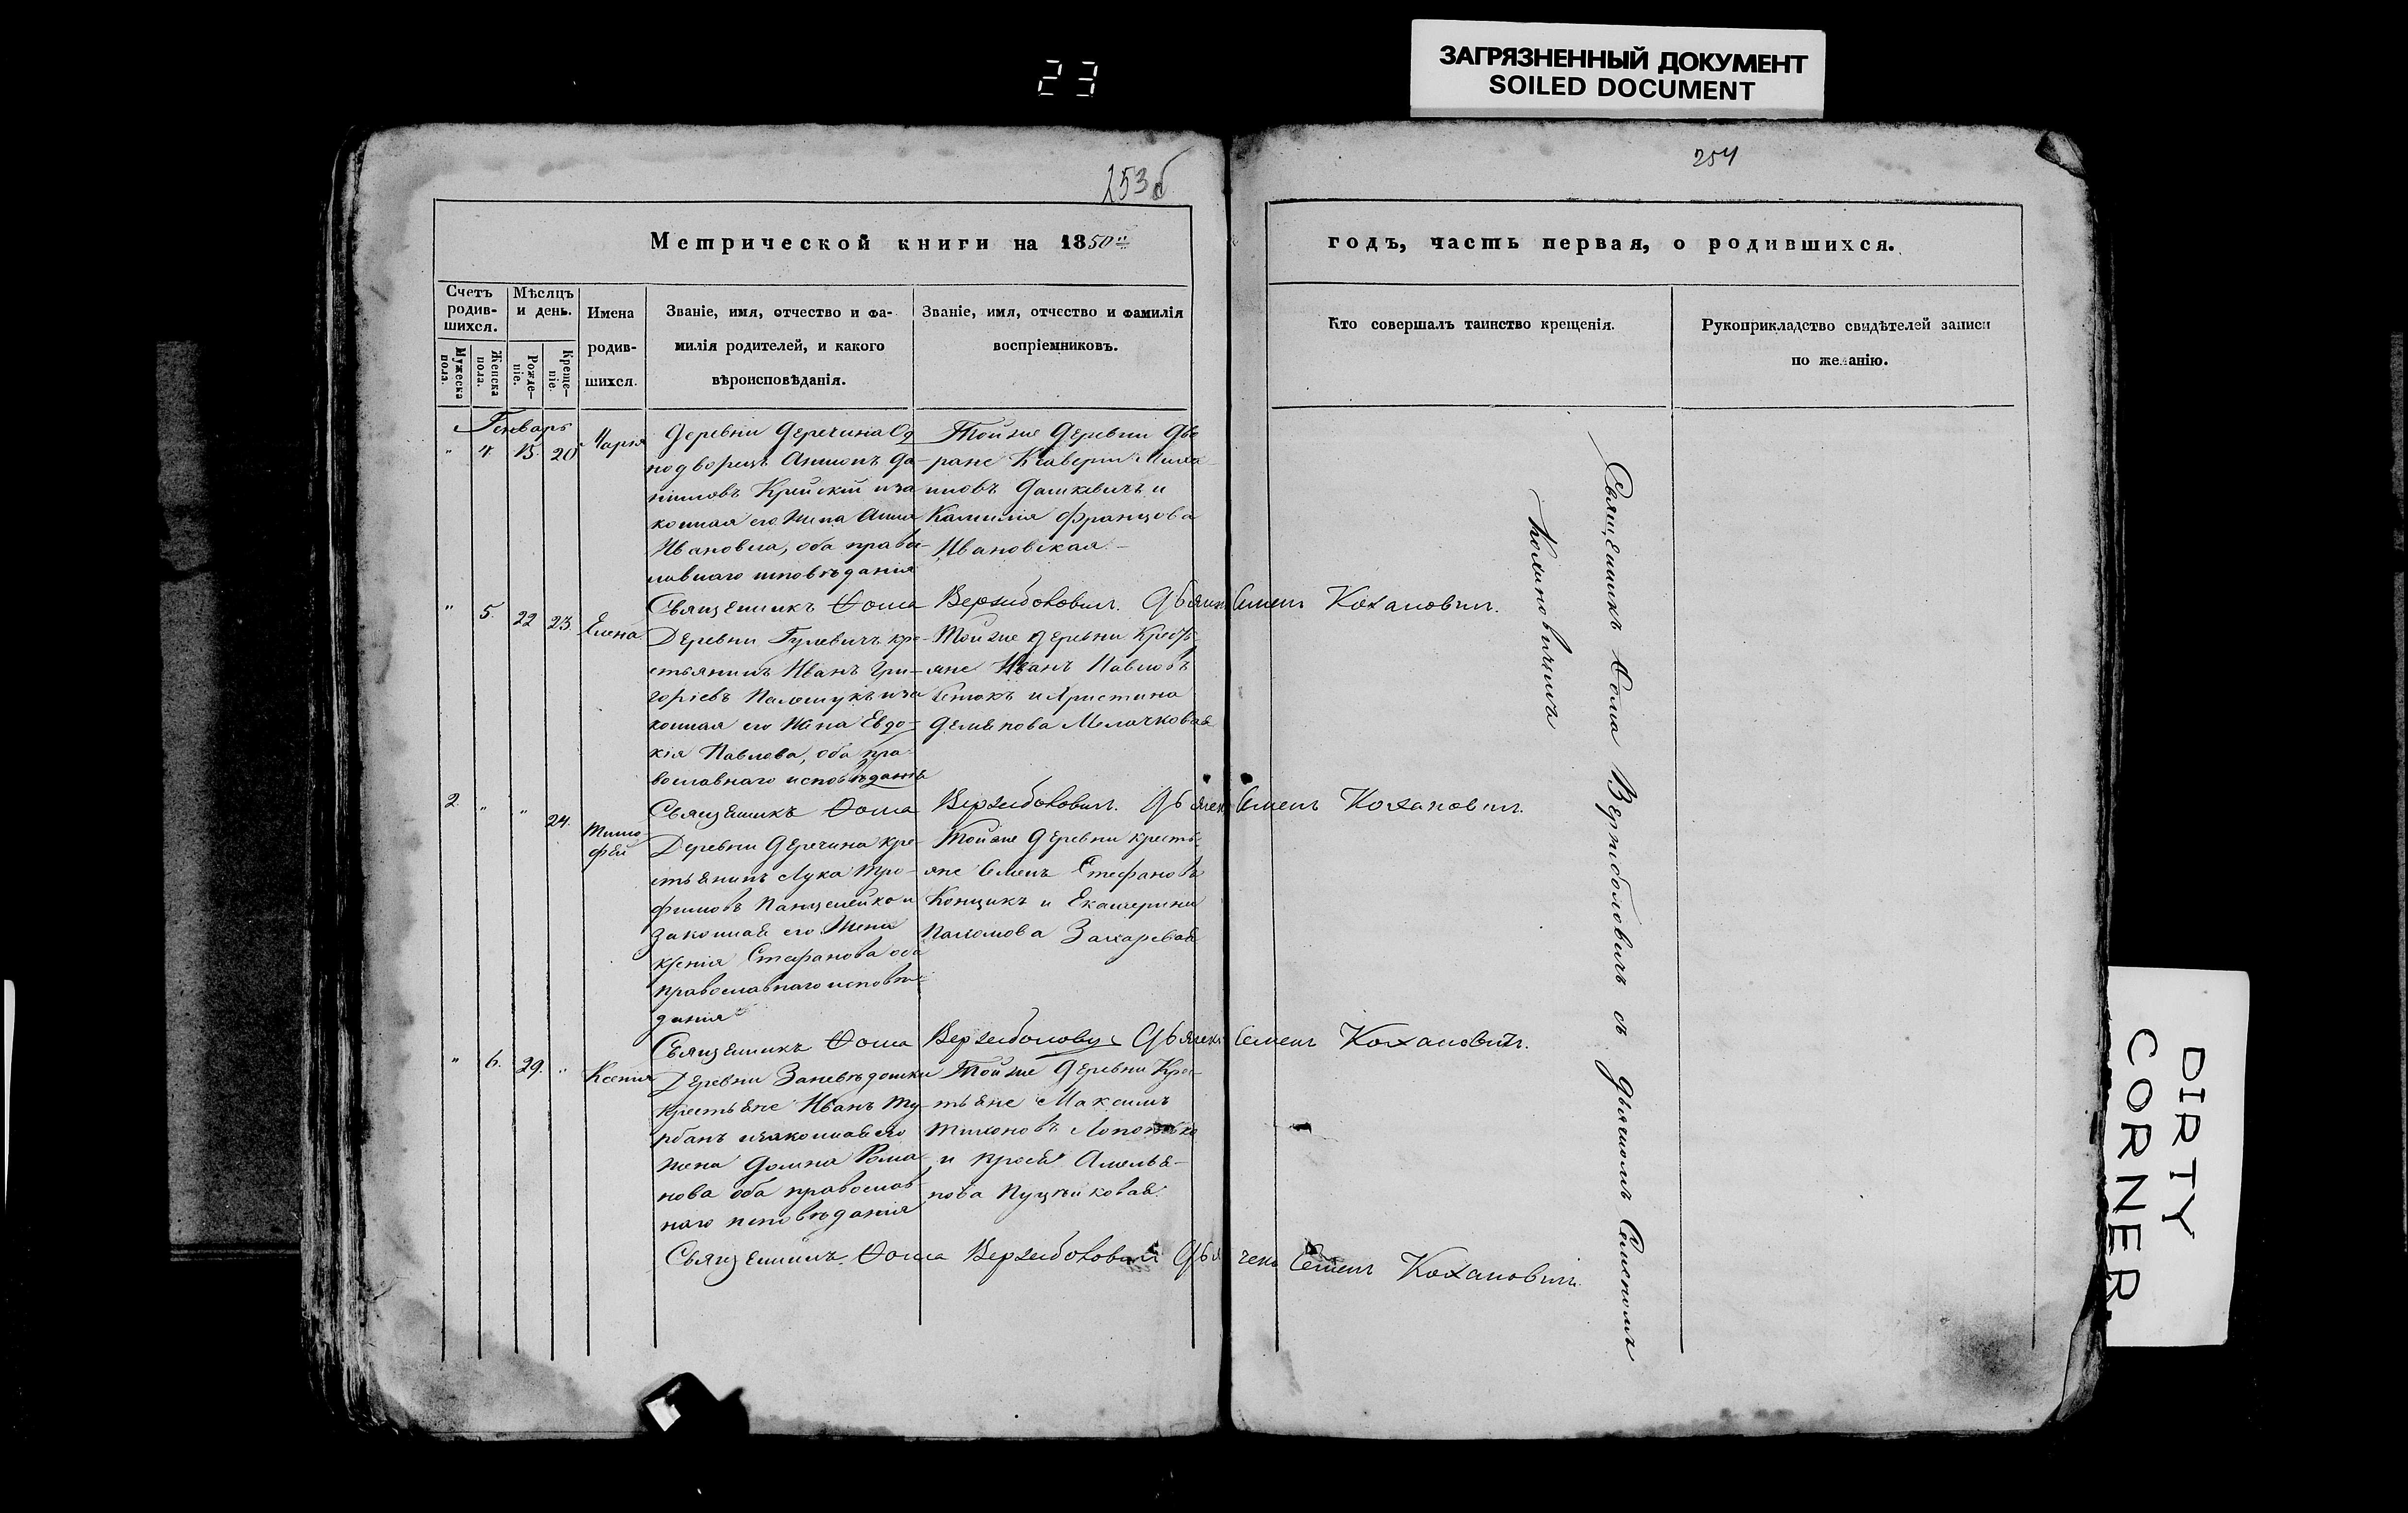 23
ЗАГРЯЗНЕННЫЙ ДОКУМЕНТ
SOILED DOCUMENT
253б
254
Метрической книги на 1850
годъ, часть первая, о родившихся.
Счетъ родившихся.
Мужеска пола.
Женска пола.
Мѣсяцъ и день.
Рожденіе.
Крещеніе.
Имена родившихся.
Званіе, имя, отчество и фамилія родителей, и какого вѣроисповѣданія.
Званіе, имя, отчество и фамилія воспріемниковъ.
Кто совершалъ таинство крещенія.
Рукоприкладство свидѣтелей записи по желанію.
Генварь
" 4. 20 Марія
Деревни Деречина Од
нодворецъ Антонъ Да-
ніиловъ и за
конная его жена Анна
Ивановна, оба право-
славнаго исповѣданія
Тойже деревни Дво
ране Ксаверій Миха-
иловъ Дашкевичъ и
Камилія Францова
Ивановская
Священникъ Ѳома Вержболовичъ. Дьячекъ Семенъ Кохановичъ.
" 5. 22 23. Елена
Деревни Гулевичъ кре-
стьянинъ Иванъ Гри-
горіевъ и за
конная его жена Евдо-
кія Павлова, оба пра
вославнаго исповѣданія
Тойже деревни Кресть-
яне Иванъ Павловъ
и Христина
Мелачковая
Священникъ Ѳома Вержболовичъ. Дьячекъ Семенъ Кохановичъ.
2 " " 24. Тимо-
фей
Деревни Деречина кре-
стьянинъ Лука Тро-
фимовъ и
законная его жена
Ксенія Стефанова оба
православнаго исповѣ-
данія
Тойже деревни кресть-
яне Семенъ Стефановъ
Концикъ и Екатерина
Пахомова Захаревая
Священникъ Ѳома Вержболовичъ Дьячекъ Семенъ Кохановичъ.
" 6. 29. " Ксенія
Деревни
крестьяне Иванъ Ту-
рбанъ и законная его
жена Домна Рома-
нова оба православ-
наго исповѣданія
Тойже Деревни Кре-
стьяне Максимъ
Тихоновъ
и Амелья-
нова
Священникъ Ѳома Вержболовичъ Дьячекъ Семенъ Кохановичъ.
Священникъ Ѳома Вержболовичъ съ дьячкомъ Семеномъ
Кохановичемъ
DIRTY
CORNER